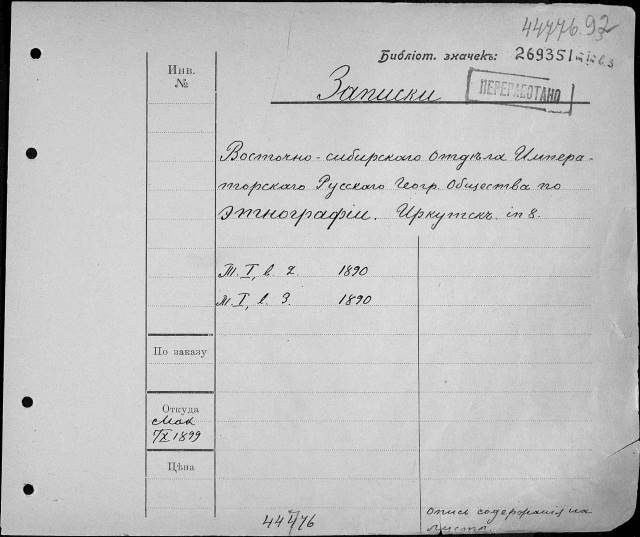 44776.92
Библіот. значекъ: 269351
Инв.
№
Записки
ПЕРЕРАБОТАНО
Восточно-сибирскаго отдѣла Импера-
торскаго Русскаго Геогр. Общества по
этнографіи. Иркутскъ. in 8.
Т. I, в. 2. 1890
Т. I, в. 3. 1890
По заказу
Откуда
1899
Цѣна
44476
Опись содержанія на
листѣ.